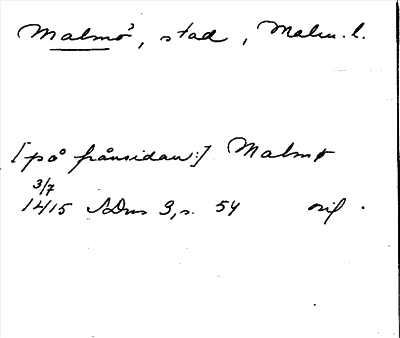 Malmö, stad, Malm. l.
[på frånsidan:] Malmø
3/7
1415 SDns 3, s. 54 orig.